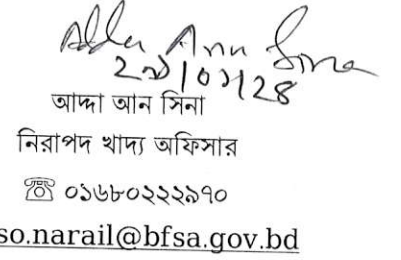 Adda Ann Sina
২৯/০১/২৪
আদ্দা আন সিনা
নিরাপদ খাদ্য অফিসার
☏ ০১৬৮০২২২৯৭০
so.narail@bfsa.gov.bd